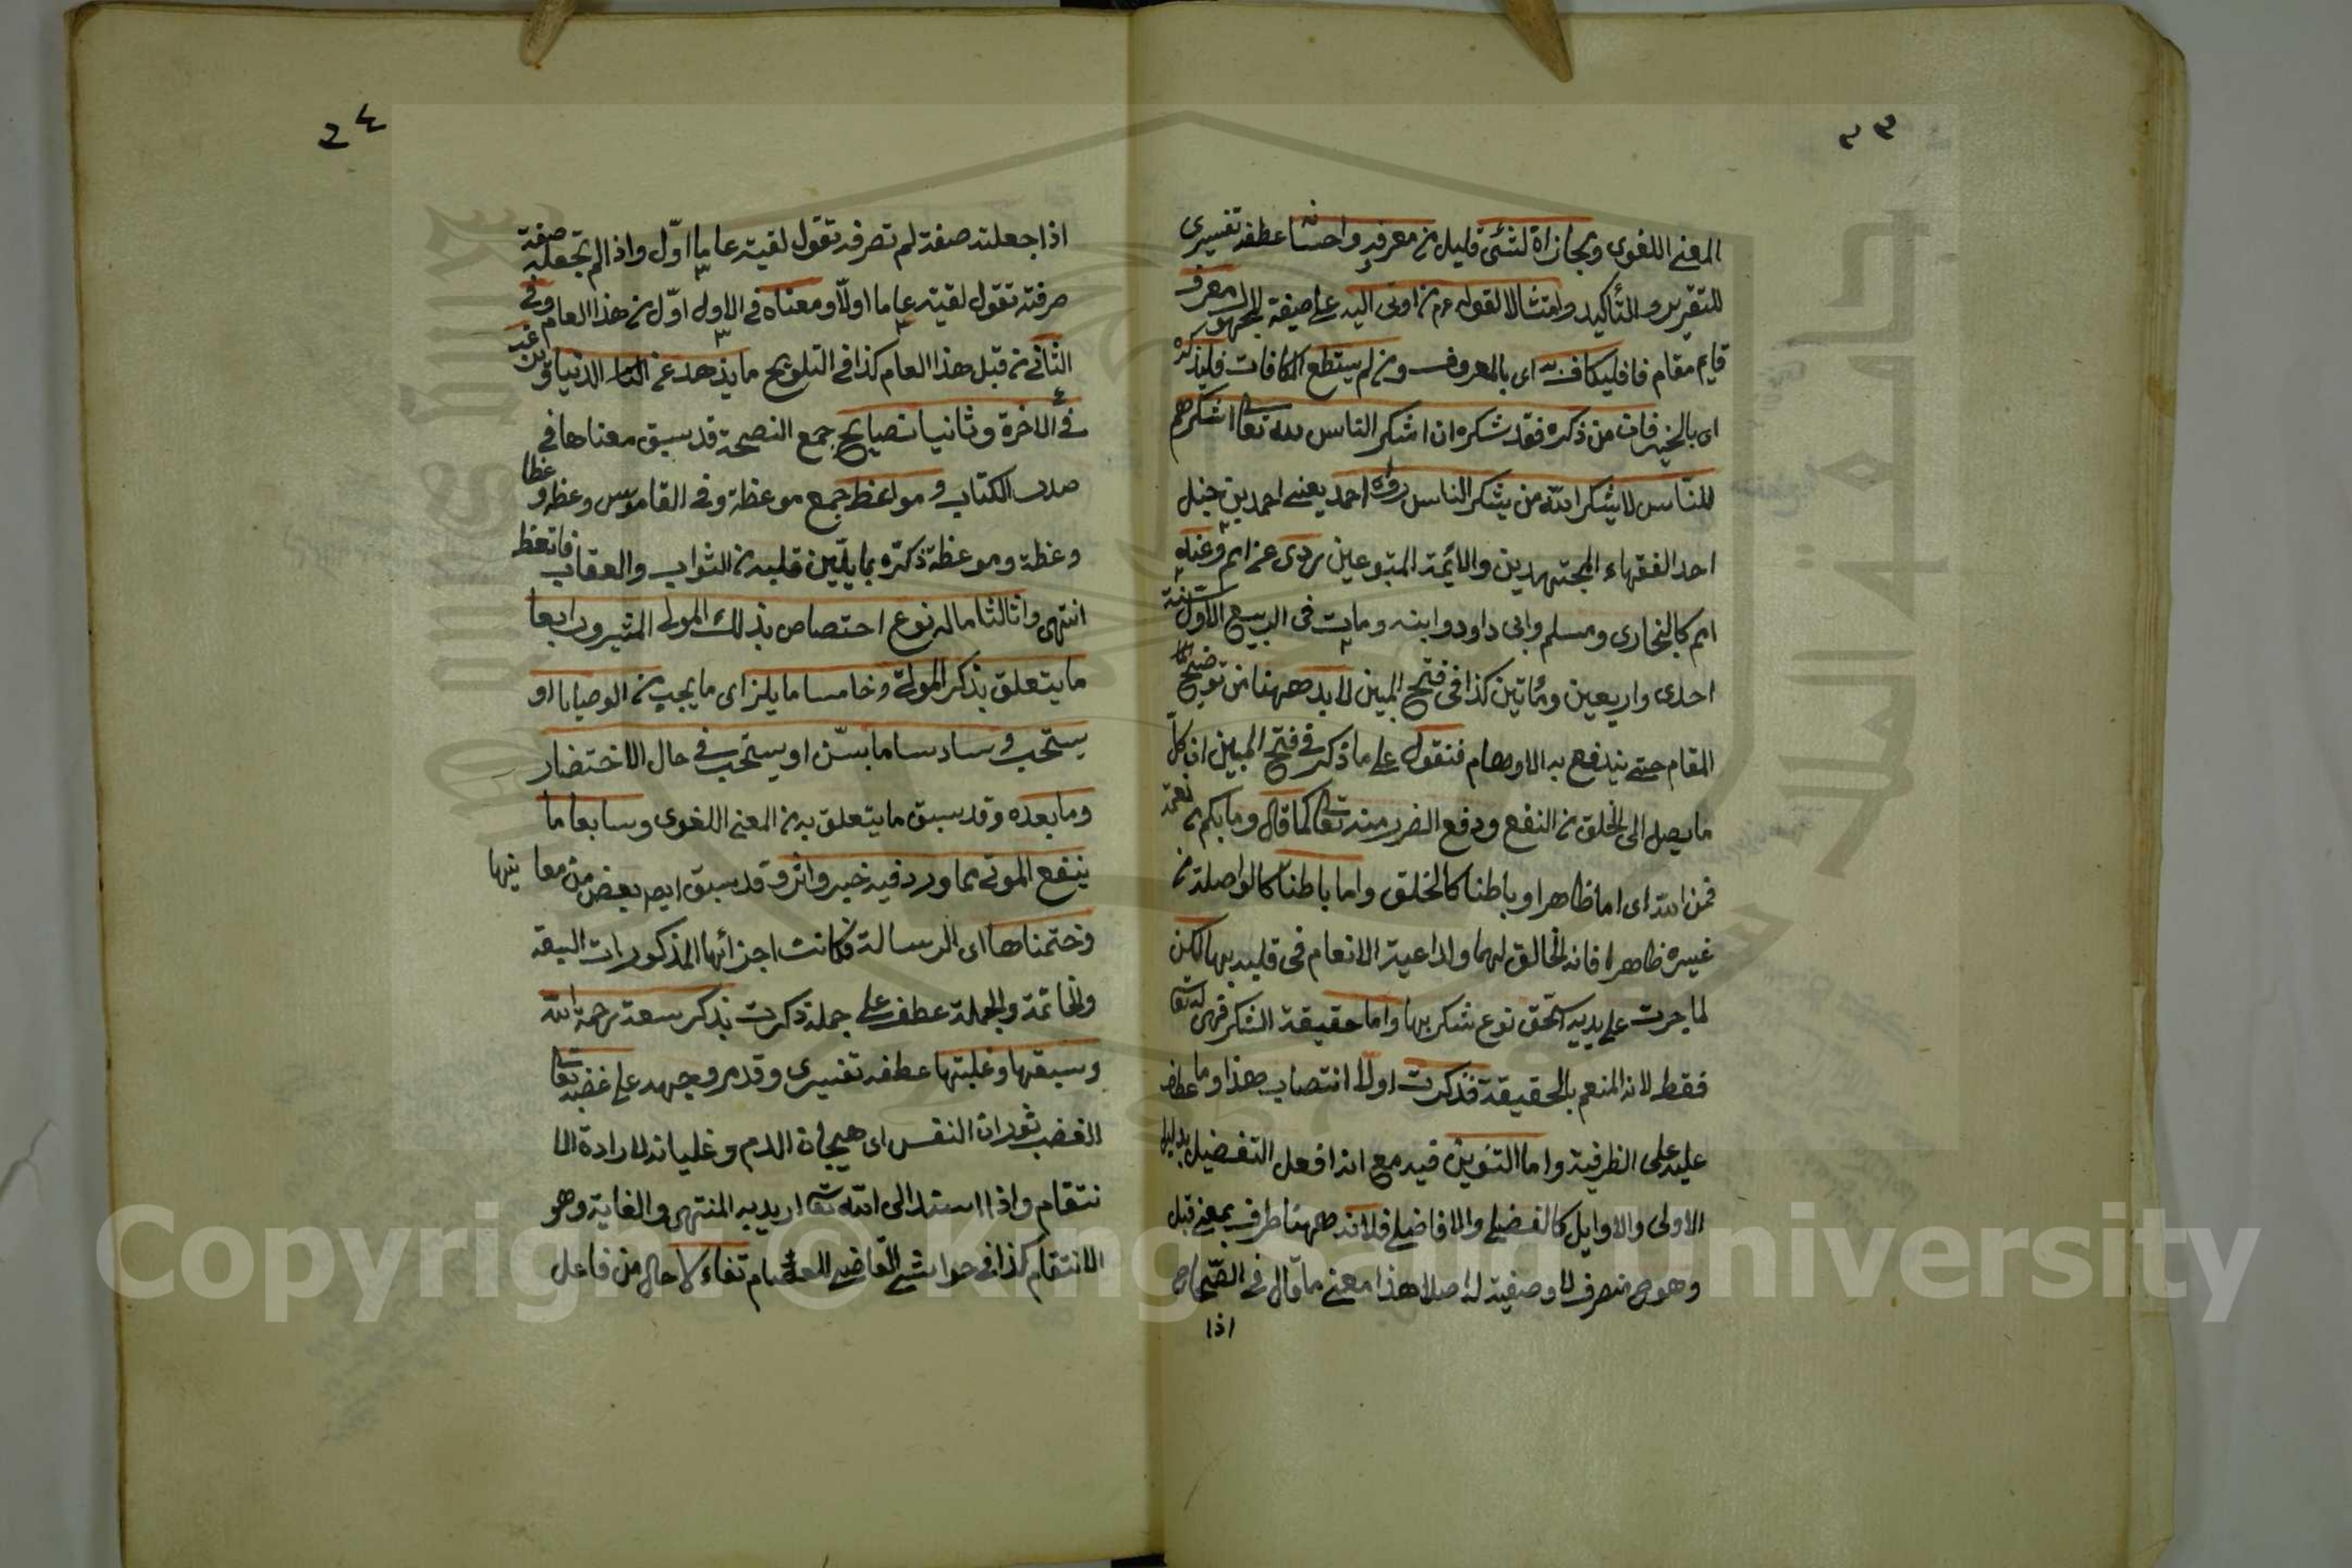 ٢٣
المعنى اللغوى ومجازاة لشئ قليل من معرفه واحسانه عطفه تفسيرى
للتقرير والتأكيد وامتثالا لقوله عم من اوتى اليه على صيغة المجهول لا المعرف
قايم مقام فا فليكاف به اى بالمعروف ومن لم يستطع المكافات فليذكره
اى بالخير فان من ذكره فقد شكره ان اشكر الناس لله تعا اشكرهم
للناس لا يشكر الله من يشكر الناس رواه احمد يعنى احمد بن حنبل
احد الفقهاء المجتهدين والائمة المتبوعين روى عن ائم وعنه
ائم كالبخارى ومسلم وابى داود وابنه ومات فى الربيع الاول سنة
احدى واربعين ومأتين كذا فى فتح المبين لا بد ههنا من توضيح
المقام حتى يندفع به الاوهام فنقول على ما ذكر فى فتح المبين ان كل
ما يصل الى الخلق من النفع ودفع الضرر منه تعا كما قال وما بكم من نعمة
فمن الله اى اما ظاهرا وباطنا كالخلق واما باطنا كالواصلة من
غيره ظاهرا فانه الخالق لها ولداعية الانعام فى قلبه بها لكن
لما جرت على يديه استحق نوع شكر بها واما حقيقة الشكر فهى له تعا
فقط لانه المنعم بالحقيقة فذكرت اولا انتصاب هذا وما عطف
عليه على الظرفية واما التنوين فيه مع انه افعل التفضيل بدليل
الاولى والاوايل كالفضلى والافاضلى فلانه ههنا ظرف بمعنى قبل
وهو ح منصرف لا وصفية له اصلا هذا معنى ما قال فى الصحاح
اذا
٢٤
اذا جعلته صفة لم تصرفه تقول لقيته عاما اول واذا لم تجعله صفة
صرفته تقول لقيته عاما اولا ومعناه فى الاول اول من هذا العام وفى
الثانى من قبل هذا العام كذا فى التلويح ما يزهد عن الدنيا
فى الاخرة وثانيا نصايح جمع النصيحة قد سبق معناها فى
صدر الكتاب ومواعظ جمع موعظة وفى القاموس وعظه وعظا
وعظة وموعظة ذكره بما يلين قلبه من الثواب والعقاب فاتعظ
انتهى وثالثا ما له نوع اختصاص بذلك المولى المشير ورابعا
ما يتعلق بذكر الموت وخامسا ما يلزم اى ما يجب من الوصايا او
يستحب وسادسا ما يسن او يستحب فى حال الاختضار
وما بعده وقد سبق ما يتعلق به من المعنى اللغوى وسابعا ما
ينفع الموتى مما ورد فيه خبر واثر وقد سبق ايم بعض من معا نيها
وختمناها اى الرسالة فكانت اجزائها المذكورات السبقة
والخاتمة والجملة عطف على جملة ذكرت بذكر سعة رحمة الله
وسبقها وغلبتها عطف تفسيرى وقد مر وجهه على غضبه تعا
الغضب ثوران النفس اى هيجان الدم وغليانه لارادة الا
نتقام واذا اسند الى الله تعا اريد به المنتهى والغاية وهو
الانتقام كذا فى حواشى القاضى تفاءلا حال من فاعل